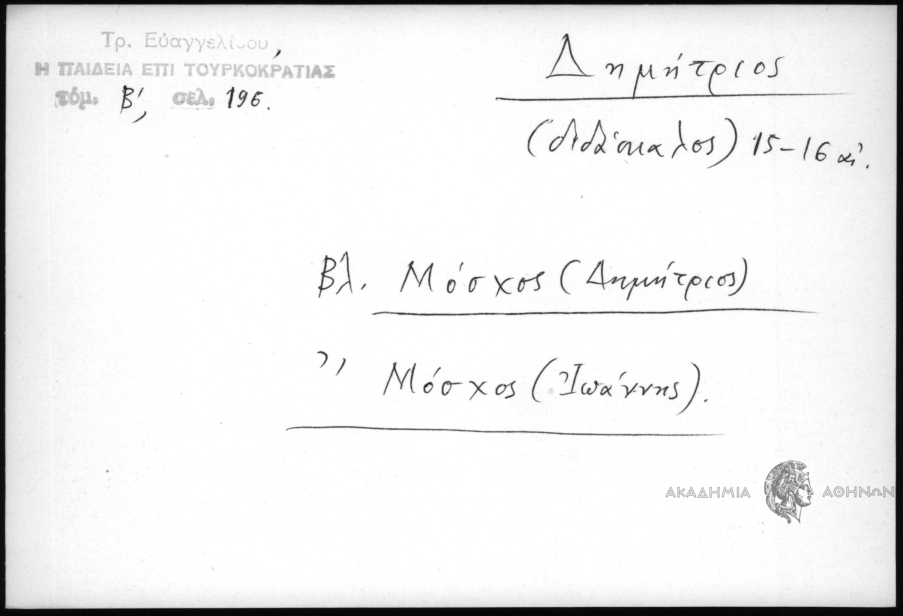 Τρ. Εὐαγγελίδου,
Η ΠΑΙΔΕΙΑ ΕΠΙ ΤΟΥΡΚΟΚΡΑΤΙΑΣ
τόμ. Β', σελ. 196.
Δημήτριος
(διδάσκαλος) 15-16 αἰ.
Βλ. Μόσχος (Δημήτριος)
,, Μόσχος (Ἰωάννης).
ΑΚΑΔΗΜΙΑ ΑΘΗΝΩΝ